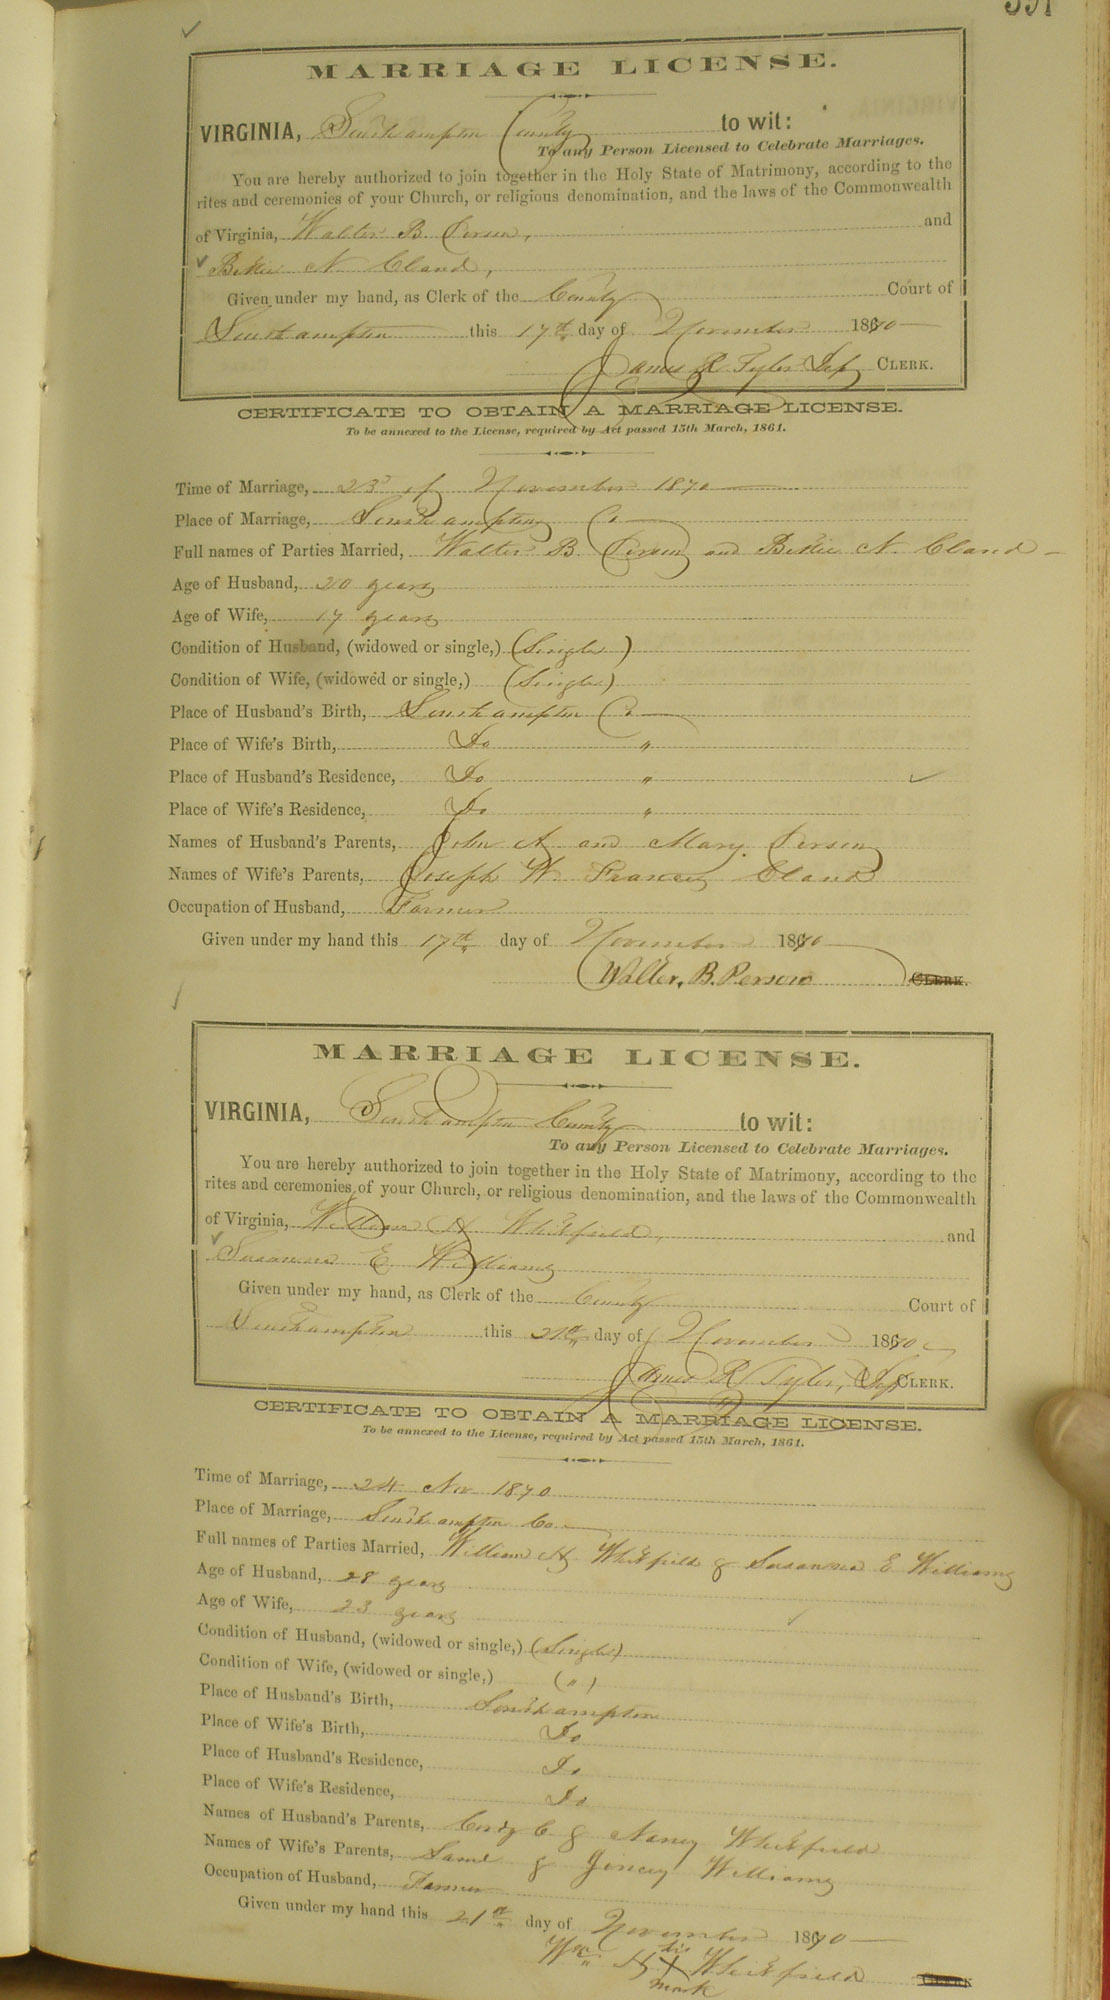 391
MARRIAGE LICENSE.
VIRGINIA, Southampton County to wit:
To any Person Licensed to Celebrate Marriages.
You are hereby authorized to join together in the Holy State of Matrimony, according to the
rites and ceremonies of your Church, or religious denomination, and the laws of the Commonwealth
of Virginia, Walter B. Person, and
Bettie N. Cland,
Given under my hand, as Clerk of the County Court of
Southampton this 17th day of November 1870
James R. Tyler Dep CLERK.
CERTIFICATE TO OBTAIN A MARRIAGE LICENSE.
To be annexed to the License, required by Act passed 15th March, 1861.
Time of Marriage, 23d of November 1870
Place of Marriage, Southampton Co
Full names of Parties Married, Walter B. Person and Bettie N. Cland
Age of Husband, 20 years
Age of Wife, 17 years
Condition of Husband, (widowed or single,) (Single)
Condition of Wife, (widowed or single,) (Single)
Place of Husband's Birth, Southampton Co
Place of Wife's Birth, Do "
Place of Husband's Residence, Do "
Place of Wife's Residence, Do "
Names of Husband's Parents, John A. and Mary Person
Names of Wife's Parents, Joseph W. Frances Cland
Occupation of Husband, Farmer
Given under my hand this 17th day of November 1870
Walter. B. Person CLERK.
MARRIAGE LICENSE.
VIRGINIA, Southampton County to wit:
To any Person Licensed to Celebrate Marriages.
You are hereby authorized to join together in the Holy State of Matrimony, according to the
rites and ceremonies of your Church, or religious denomination, and the laws of the Commonwealth
of Virginia, William H Whitfield, and
Susanna E Williams
Given under my hand, as Clerk of the County Court of
Southampton this 21th day of November 1870
James R. Tyler, Dep CLERK.
CERTIFICATE TO OBTAIN A MARRIAGE LICENSE.
To be annexed to the License, required by Act passed 15th March, 1861.
Time of Marriage, 24 Nov 1870
Place of Marriage, Southampton Co
Full names of Parties Married, William H Whitfield & Susanna E Williams
Age of Husband, 28 years
Age of Wife, 23 years
Condition of Husband, (widowed or single,) (Single)
Condition of Wife, (widowed or single,) (")
Place of Husband's Birth, Southampton
Place of Wife's Birth, Do
Place of Husband's Residence, Do
Place of Wife's Residence, Do
Names of Husband's Parents, C. & Nancy Whitfield
Names of Wife's Parents, Saml & Jincey Williams
Occupation of Husband, Farmer
Given under my hand this 21th day of November 1870
Wm H his X mark Whitfield CLERK